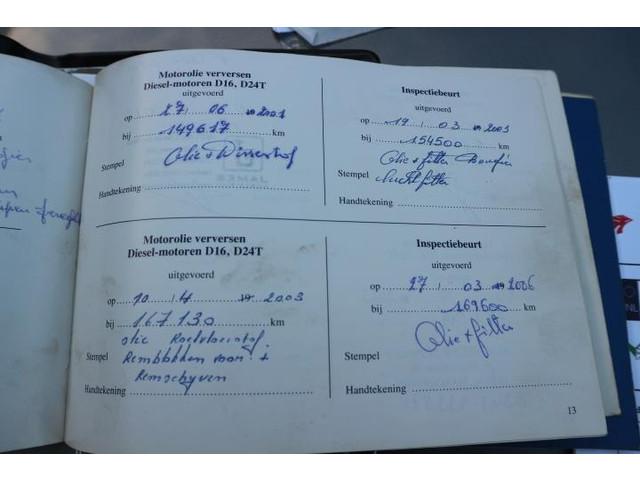 Motorolie verversen
Diesel-motoren D16, D24T
uitgevoerd
op 27 06 2001
bij 149617 km
Olie +
Stempel
Handtekening
Inspectiebeurt
uitgevoerd
op 19 03 2003
bij 154500 km
Olie + filter
Stempel Luchtfilter
Handtekening
Motorolie verversen
Diesel-motoren D16, D24T
uitgevoerd
op 10 4 19 2003
bij 167130 km
olie Koelvloeistof
Stempel Remblokken voor +
Remschyven
Handtekening
Inspectiebeurt
uitgevoerd
op 27 03 2006
bij 169600 km
Olie + filter
Stempel
Handtekening
13